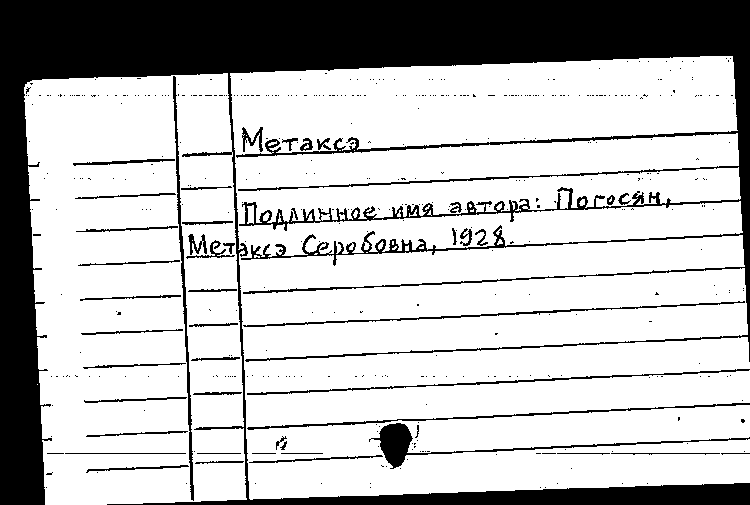 Метаксэ
Подлинное имя автора: Погосян,
Метаксэ Серобовна, 1928.